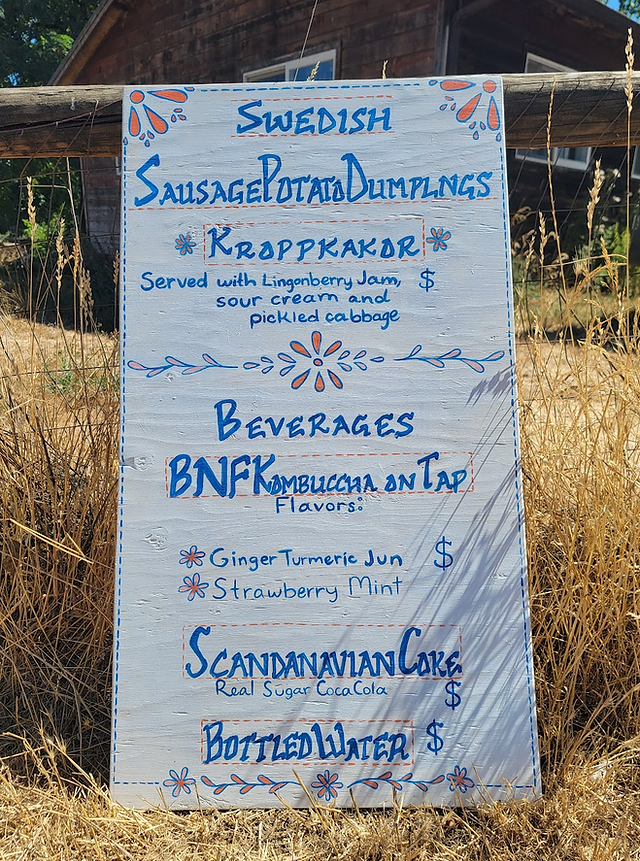 SWEDISH
SAUSAGE POTATO DUMPLNGS
KROPPKAKOR
Served with Lingonberry Jam, $
sour cream and
pickled cabbage
BEVERAGES
BNF KOMBUCCHA ON TAP
Flavors:
Ginger Turmeric Jun $
Strawberry Mint
SCANDANAVIAN COKE
Real Sugar CocaCola $
BOTTLED WATER $